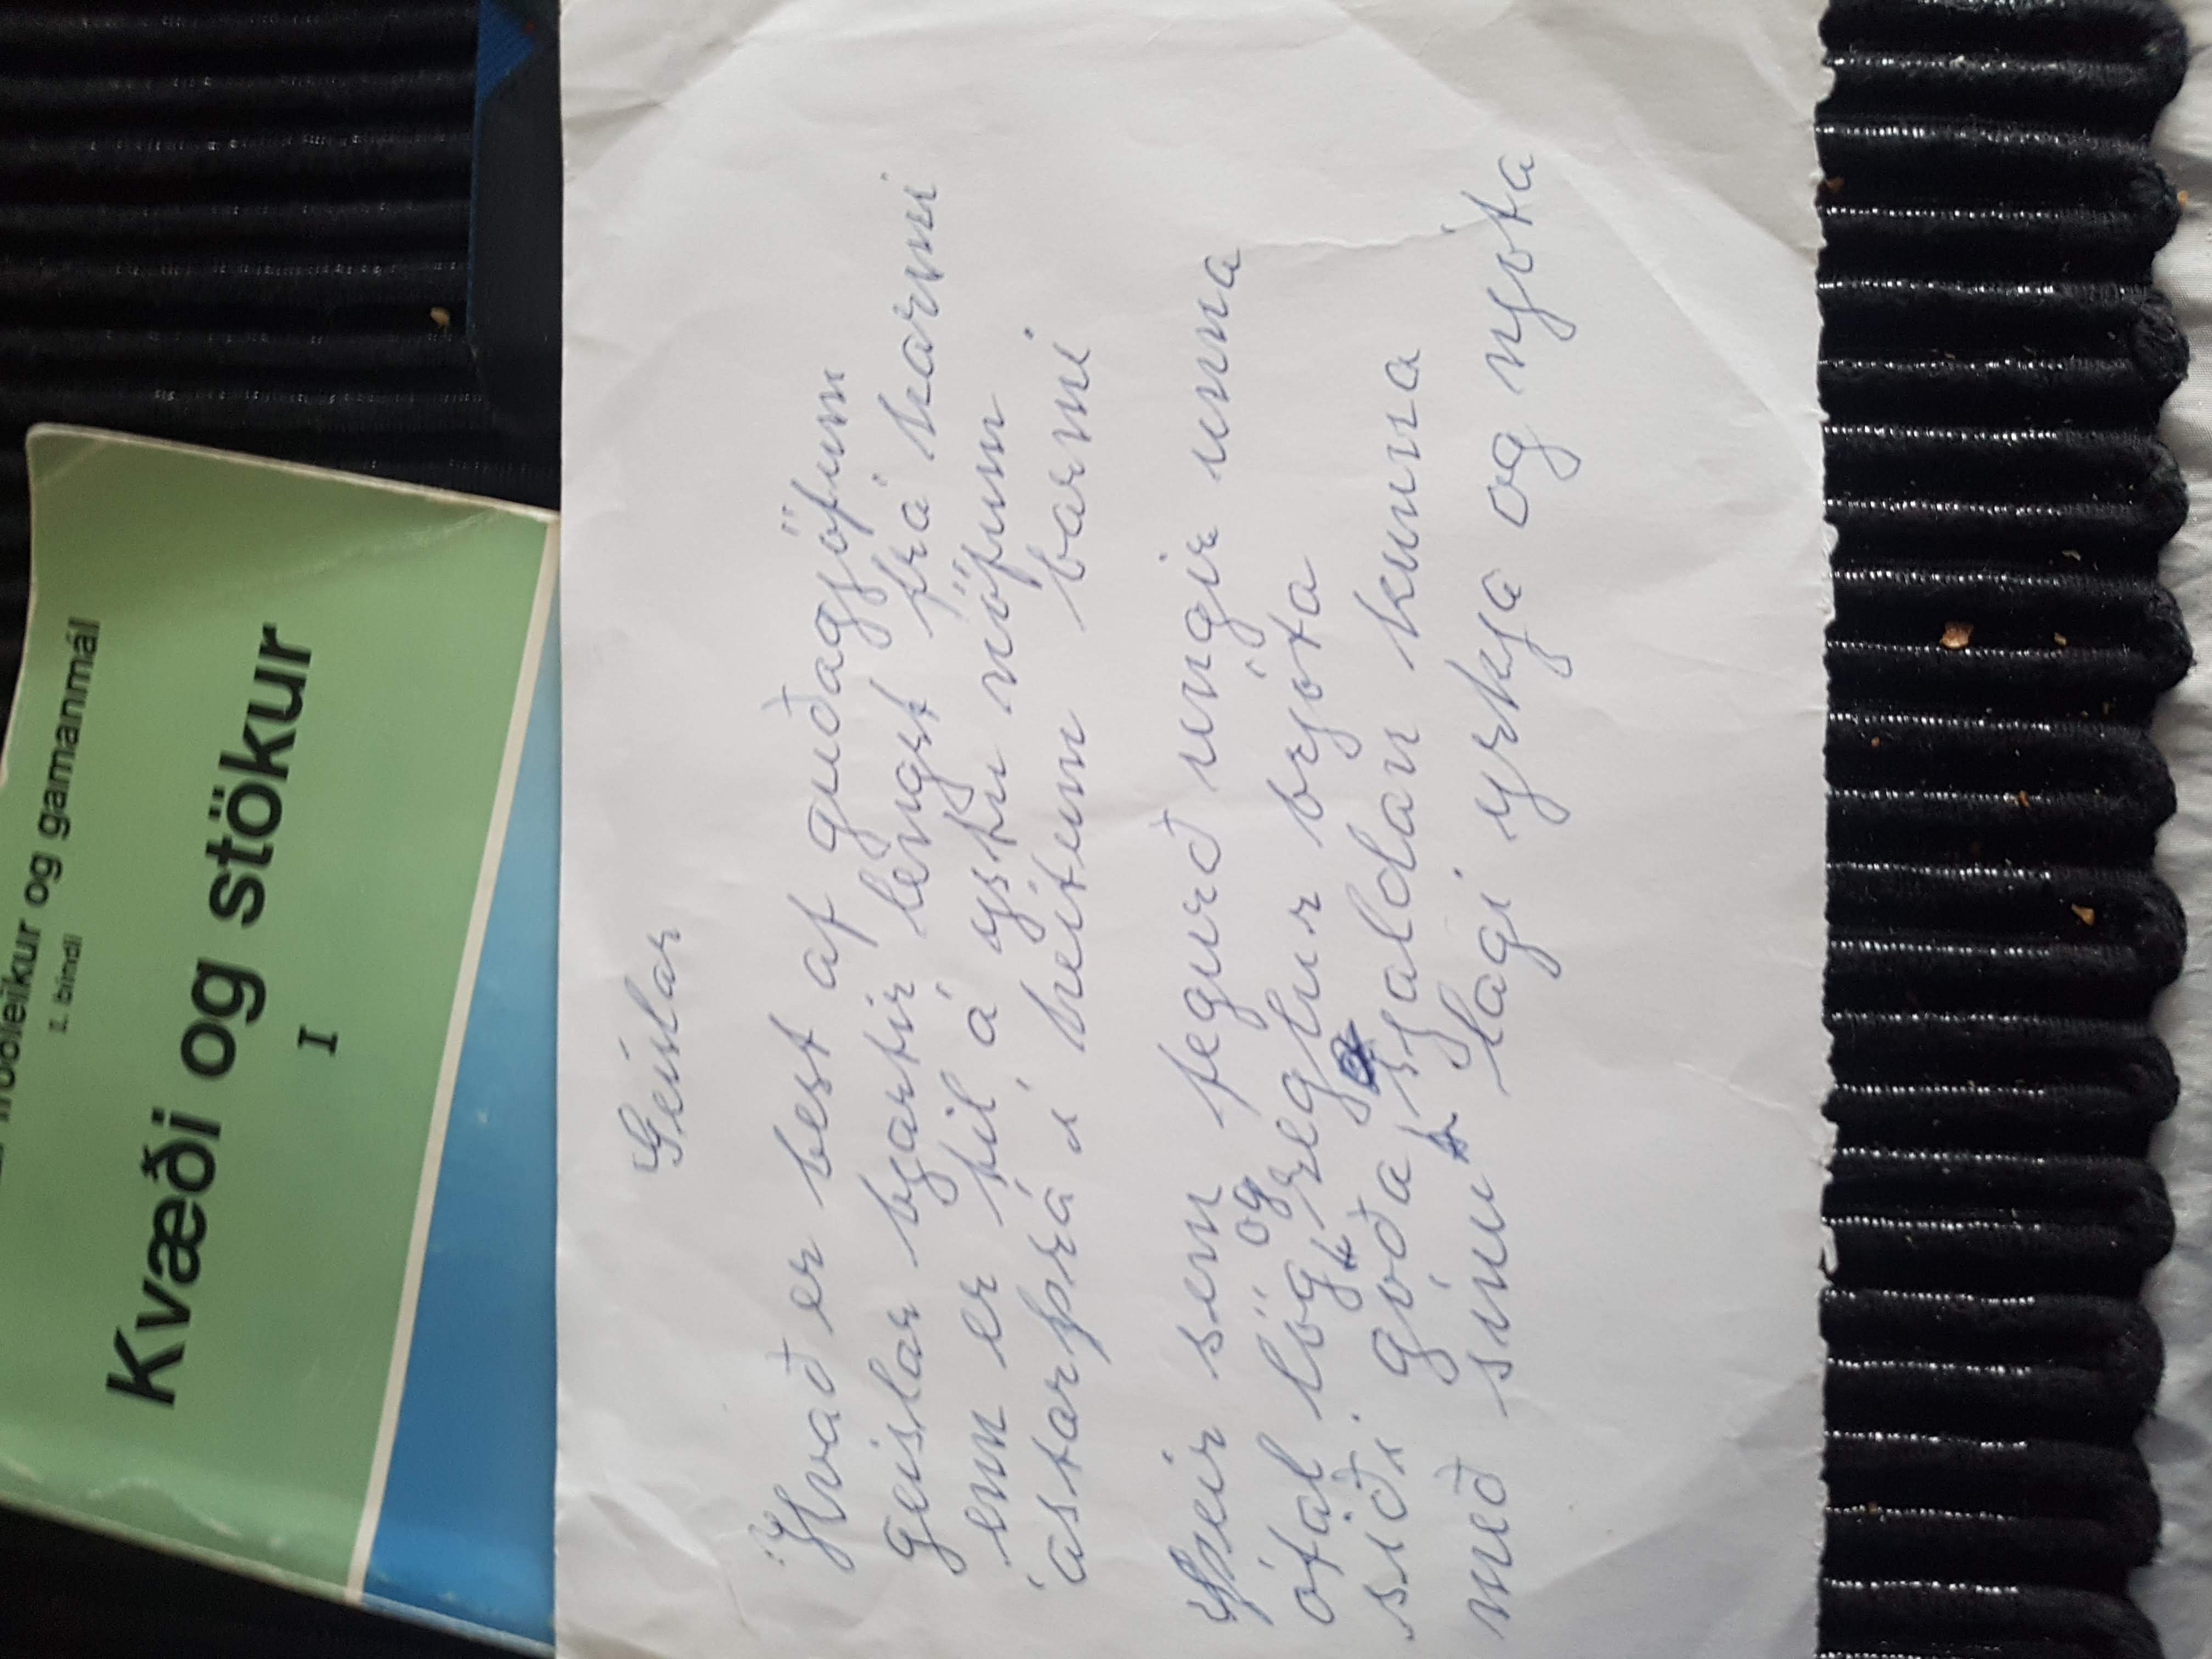 fróðleikur og gamanmál
I. bindi
Kvæði og stökur
I
Geislar
Hvað er best af guðagjöfum
geislar bjartir lengst frá harmi
enn er til á ystu nöfum
ástarþrá í heitum barmi
Þeir sem fegurð ungir unna
ótal lög og reglur brjóta
siði góða sjaldan kunna
með sínu lagi yrkja og njóta